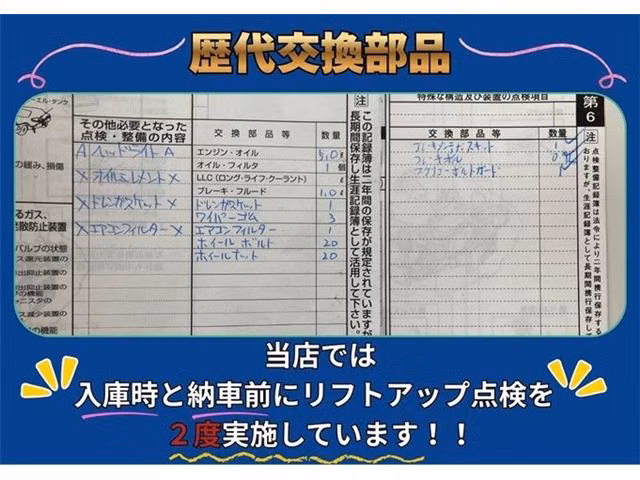 歴代交換部品
エーエル・タンク
の緩み、損傷
るガス、
発散防止装置
バルブの状態
ス還元装置の
出抑止装置の
の機能
ャニスタの
ス減少装置の
の機能
その他必要となった
点検・整備の内容
A ヘッドライト A
X オイルエレメント X
X ドレンガスケット X
X エアコンフィルター X
交換部品等 数量
エンジン・オイル 5.0 ℓ
オイル・フィルタ 1 個
LLC (ロング・ライフ・クーラント) ℓ
ブレーキ・フルード 1.0 ℓ
ドレンガスケット 1
ワイパーゴム 3
エアコンフィルター 1
ホイールボルト 20
ホイールナット 20
注 この記録簿は二年間の保存が規定されていますが
長期間保存し生涯記録簿として活用して下さい。
特殊な構造及び装置の点検項目
交換部品等 数量
第6
注 点検整備記録簿は法令により二年間携行保存する
おりますが、生涯記録簿として長期間携行保存して
当店では
入庫時と納車前にリフトアップ点検を
２度実施しています！！